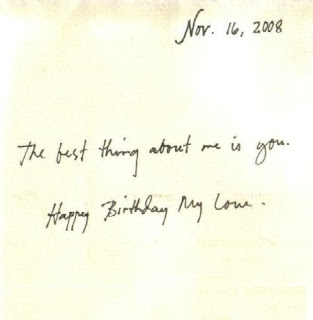 Nov. 16, 2008
The best thing about me is you.
Happy Birthday My Love.